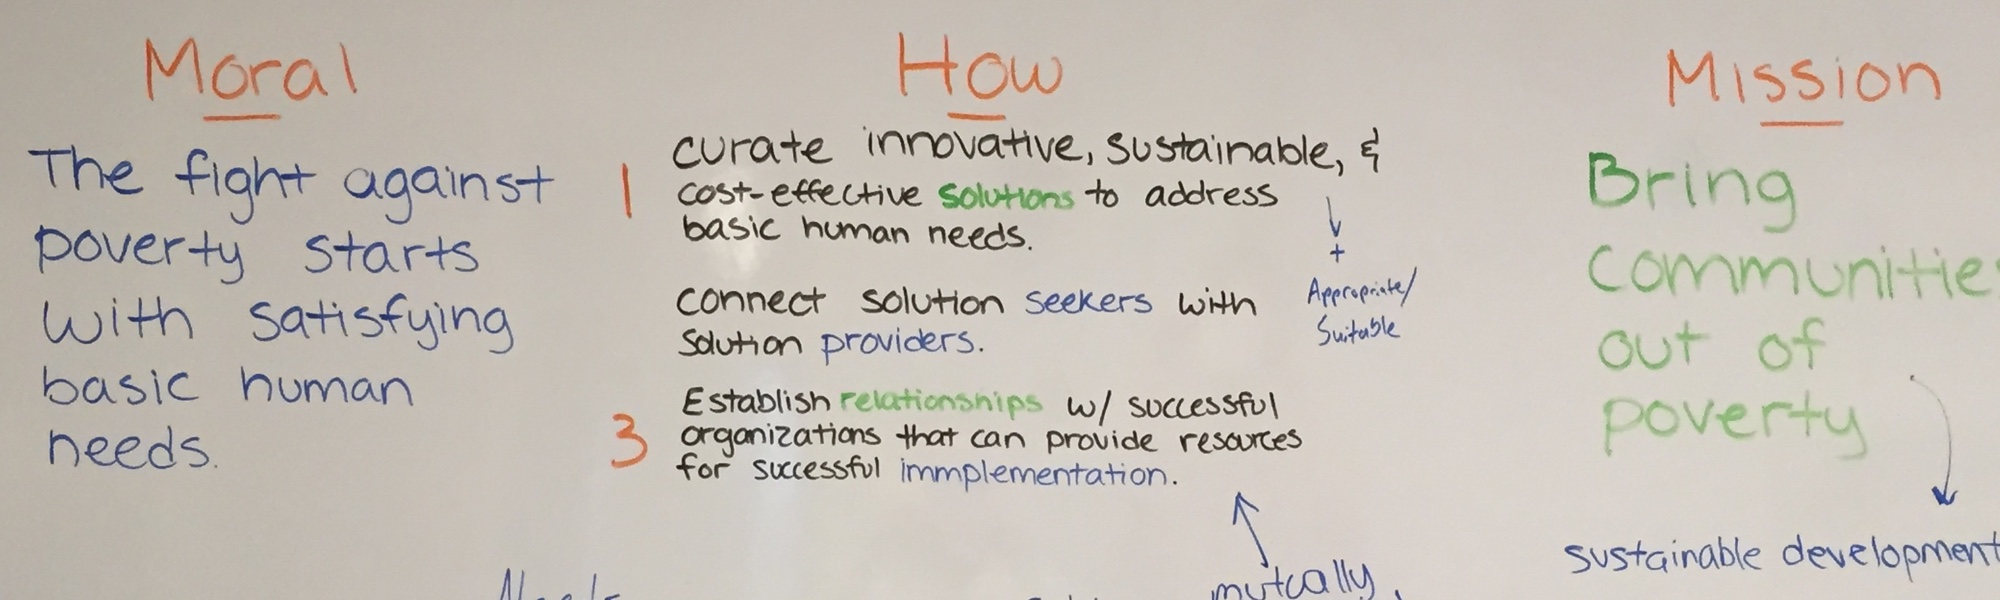 Moral
The fight against
poverty starts
with satisfying
basic human
needs.
How
1
curate innovative, sustainable, &
cost-effective solutions to address
basic human needs.
↓
+
Appropriate/
Suitable
connect solution seekers with
solution providers.
3
Establish relationships w/ successful
organizations that can provide resources
for successful immplementation.
mutually
Mission
Bring
communities
out of
poverty
sustainable development